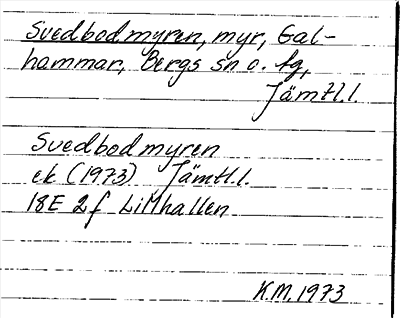 Svedbodmyren, myr, Gal-
hammar, Bergs sn o. tg,
Jämtl.l.
Svedbodmyren
ek (1973) Jämtl.l.
18E 2f Lillhallen
K.M. 1973